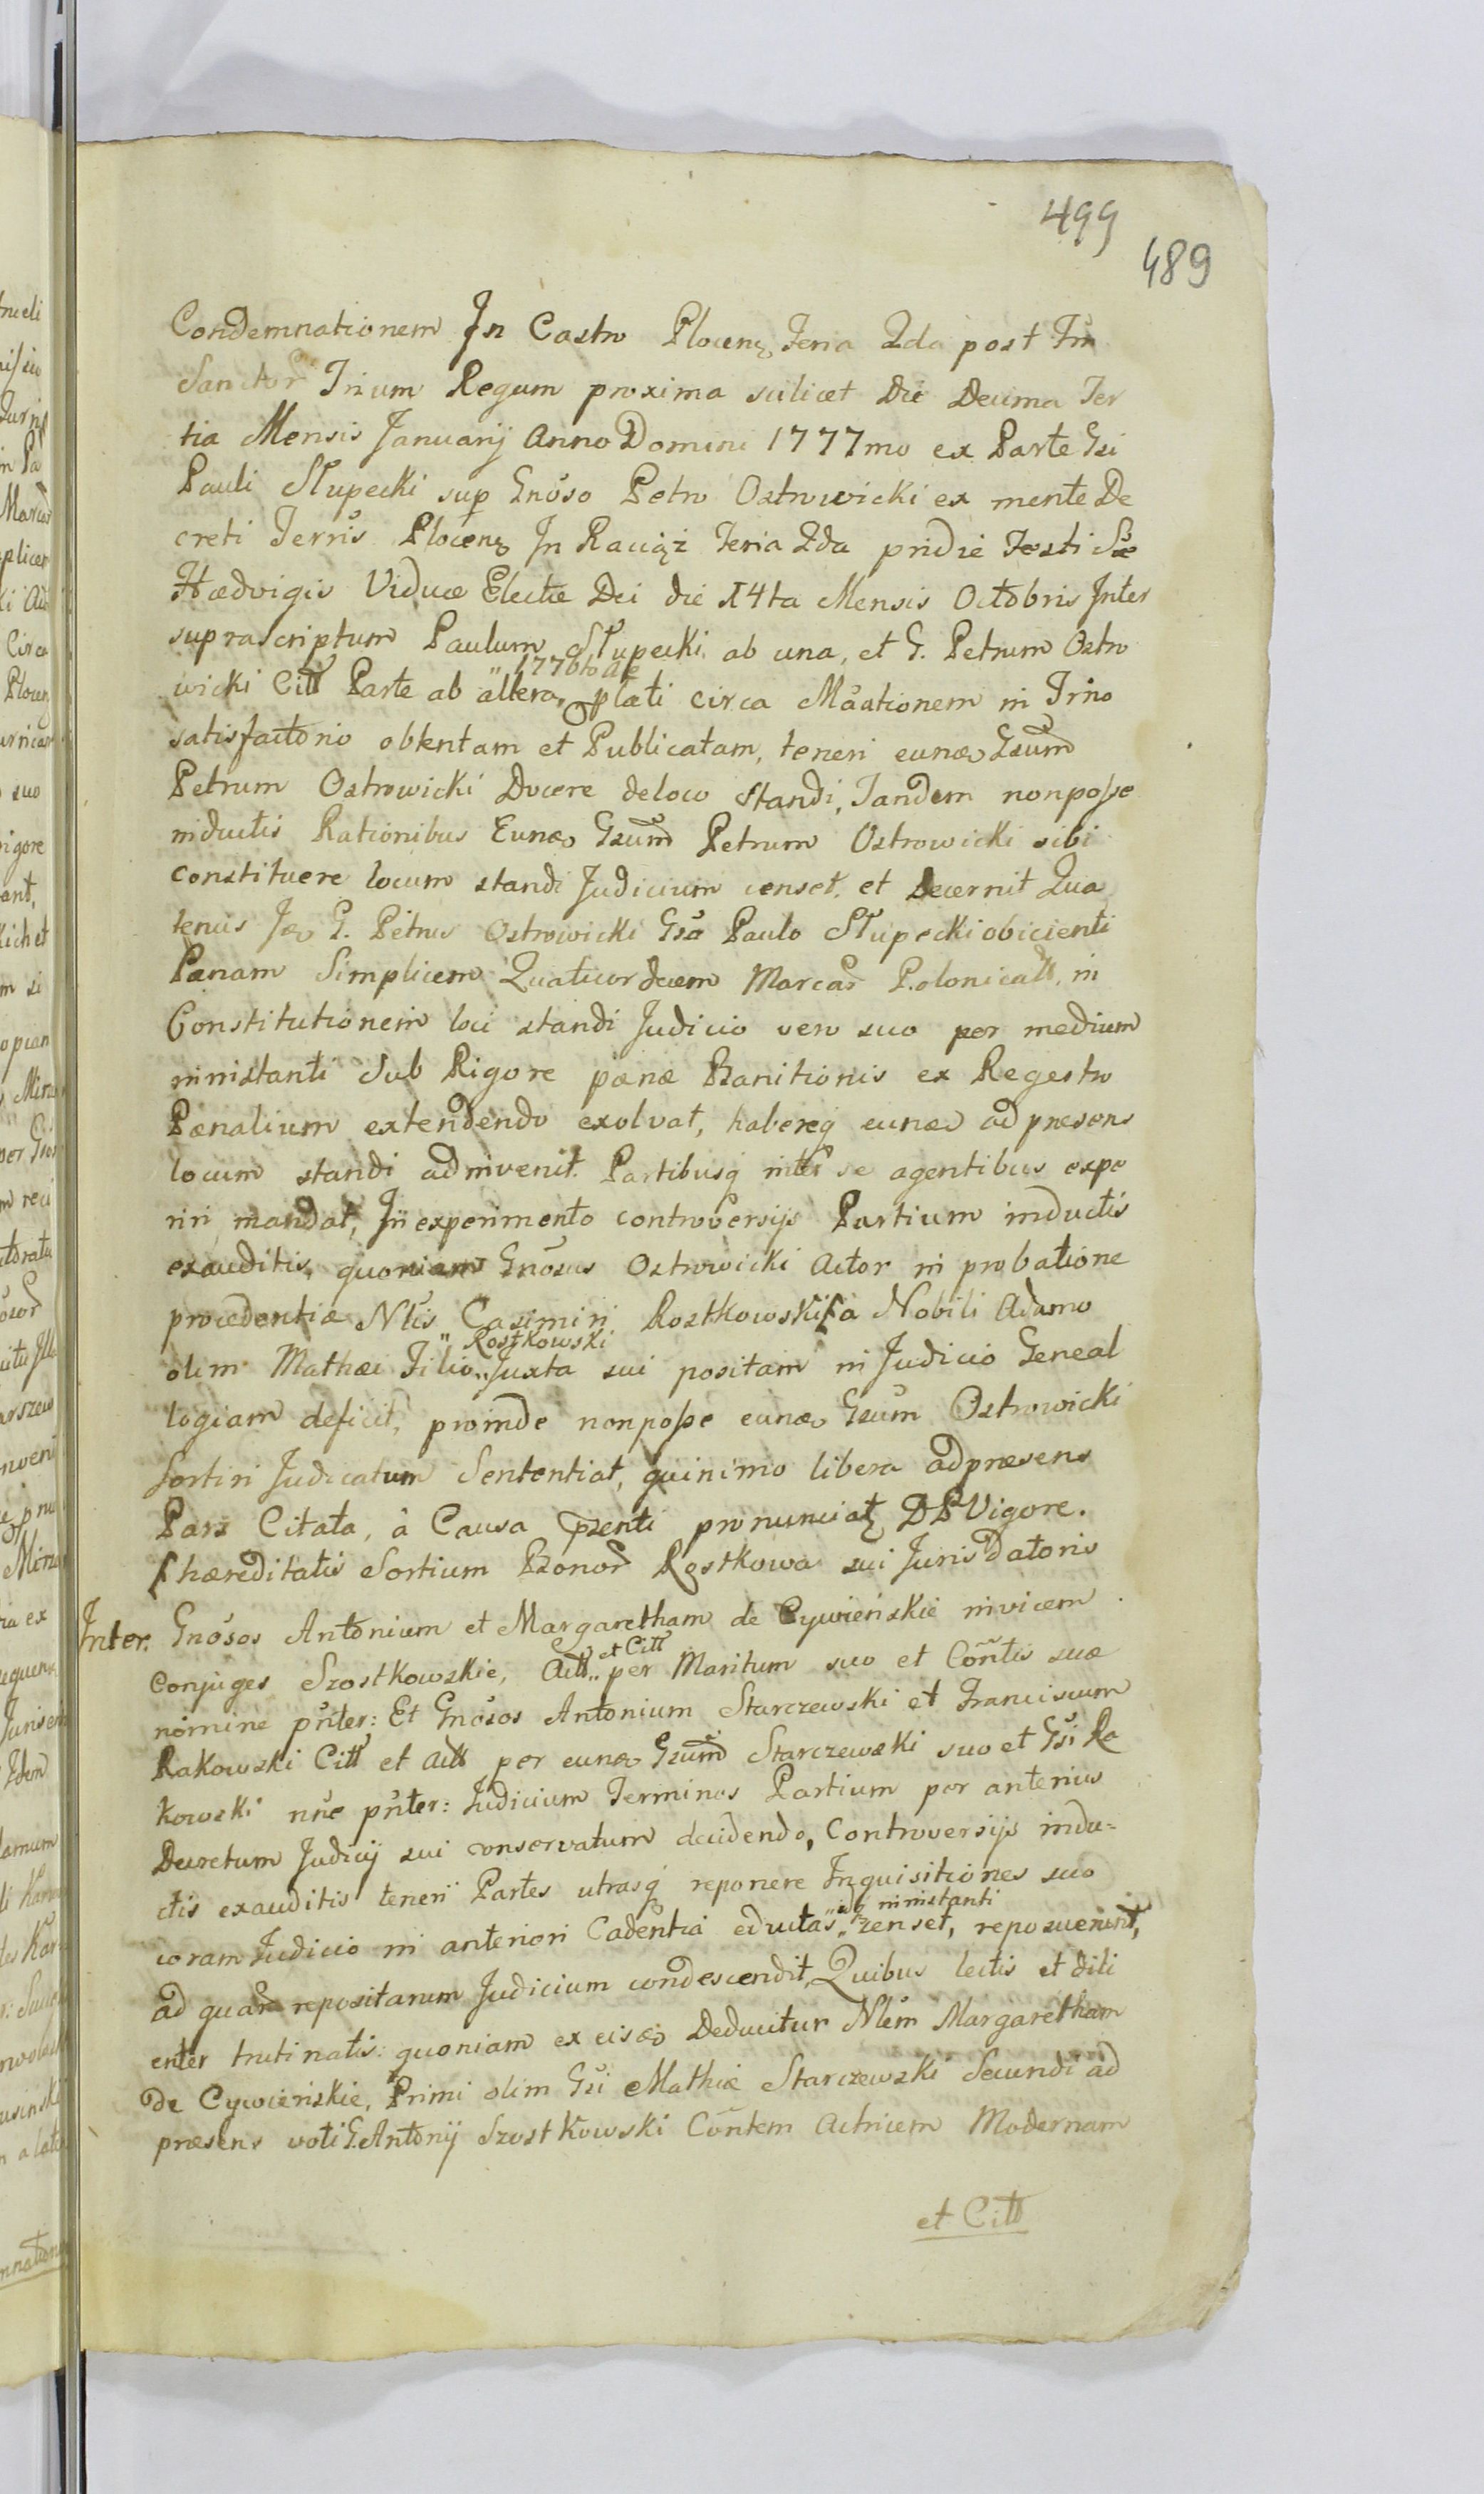 499
489
Condemnationem In Castro Plocen Feria 2da post Fm
Sanctor Trium Regum proxima scilicet Die Decima Ter
tia Mensis Januarij Anno Domini 1777mo ex Parte Gsi
Pauli Słupecki sup Gnoso Petro Ostrowicki ex mente De
creti Terris Plocen In Raciąż Feria 2da pridie Festi Stæ
Hædvigis Viduæ Electæ Dei die 14ta Mensis Octobris Inter
suprascriptum Paulum Słupecki ab una, et G. Petrum Ostro
1776to
wicki Citt Parte ab altera, plati circa Maationem in Trno
satisfactorio obtentam et Publicatam, teneri eunđ Gsum
Petrum Ostrowicki Docere de loco standi, Tandem nonposse
inductis Rationibus Eunđ Gsum Petrum Ostrowicki sibi
constituere locum standi Judicium censet, et Decernit Qua
tenus Iđ G. Petrus Ostrowicki Gso Paulo Słupecki obicienti
Pænam Simplicem Quatuordecem Marcar Polonicall, in
Constitutionem loci standi Judicio vero suo per medium
ninistanti Sub Rigore pænæ Banitionis ex Regestro
Pænalium extendendo exolvat, habereq eunđ ad præsens
locum standi adinvenit. Partibusq inter se agentibus expe
riri mandat, In experimento controversijs Partium inductis
exauditis, quoniam Gnosus Ostrowicki Actor in probatione
procedentiæ Nlis Casimiri Rostkowski a Nobili Adamo
Rostkowski
olim Mathæi Filio Juxta sui positam in Judicio Geneal
logiam deficit, proinde nonposse eunđ Gsum Ostrowicki
Sortiri Judicatum Sententiat, quinimo libera adpræsens
Pars Citata, à Causa præsenti pronunciat DP Vigore.
hæreditatis Sortium Bonor Rostkowa sui Juris Datoris
Inter. Gnosos Antonium et Margaretham de Cywieńskie invicem
et Citt
Conjuges Szostkowskie, Actt per Maritum suo et Contis suæ
nomine pnter: Et Gnosos Antonium Starczewski et Franciscum
Rakowski Citt et Actt per eunđ Gsum Starczewski suo et Gsi Ra
kowski nne pnter: Judicium Terminos Partium per anterius
Decretum Judicij sui conservatum decidendo, Controversijs indu=
ctis exauditis teneri Partes utrasq reponere Inquisitiones suo
ninistanti
coram Judicio in anteriori Cadentia eductas censet, reposuerunt,
ad quar repositarum Judicium condescendit, Quibus lectis et dili
enter trutinatis: quoniam ex eisđ Deducitur Nlem Margaretham
De Cywieńskie, Primi olim Gsi Mathiæ Starczewski Secundi ad
præsens voti G. Antonij Szostkowski Contem Actricem Modernam
et Citt